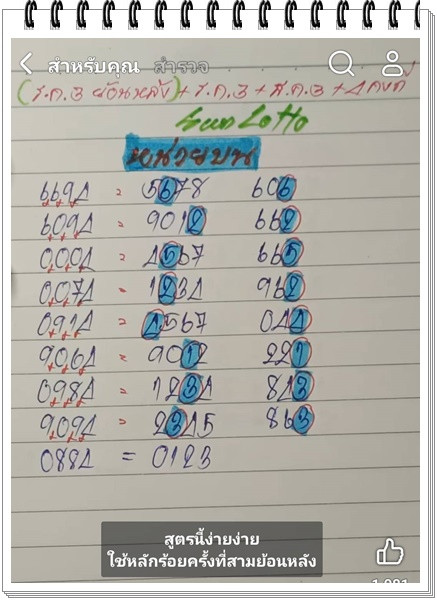 สำหรับคุณ สำรวจ
(ร.ค.3 ย้อนหลัง)+ร.ค.3+ส.ค.3+4 คงที่
Lotto
หน่วยบน
6694 = 5678 606
6094 = 9012 662
0004 = 4567 665
0074 = 1234 962
0914 = 4567 044
9064 = 9012 221
0984 = 1234 843
9094 = 2345 863
0884 = 0123
สูตรนี้ง่ายง่าย
ใช้หลักร้อยครั้งที่สามย้อนหลัง